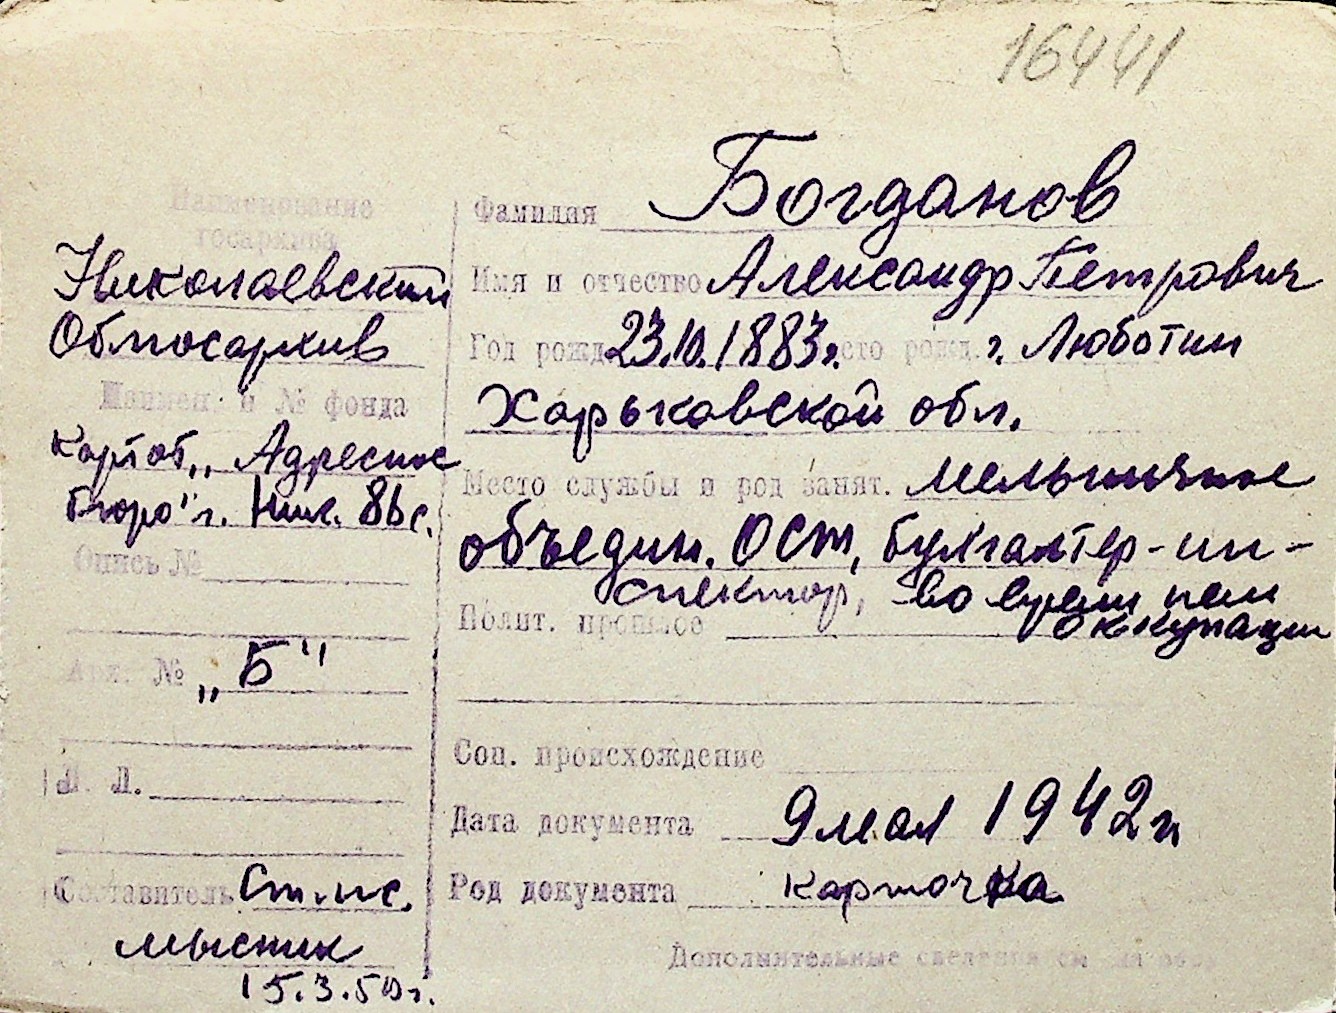 16441
Наименование
госархива
Николаевский
Облгосархив
Наимен. и № фонда
Картот. „Адресное
бюро" г. Ник.
Опись №
Арх. № „Б"
Л. Л.
Составитель Ст. н. с.
Мысник
15.3.50 г.
Фамилия Богданов
Имя и отчество Александр Петрович
Год рожд. 23.10.1883 г. Место рожд. г. Люботин
Харьковской обл.
Место службы и род занят. мельничное
объедин. ОСТ, бухгалтер-ин-
спектор, во время нем
оккупации
Полит. прошлое
Соц. происхождение
Дата документа 9 мая 1942 г
Род документа карточка
Дополнительные сведения см на обор